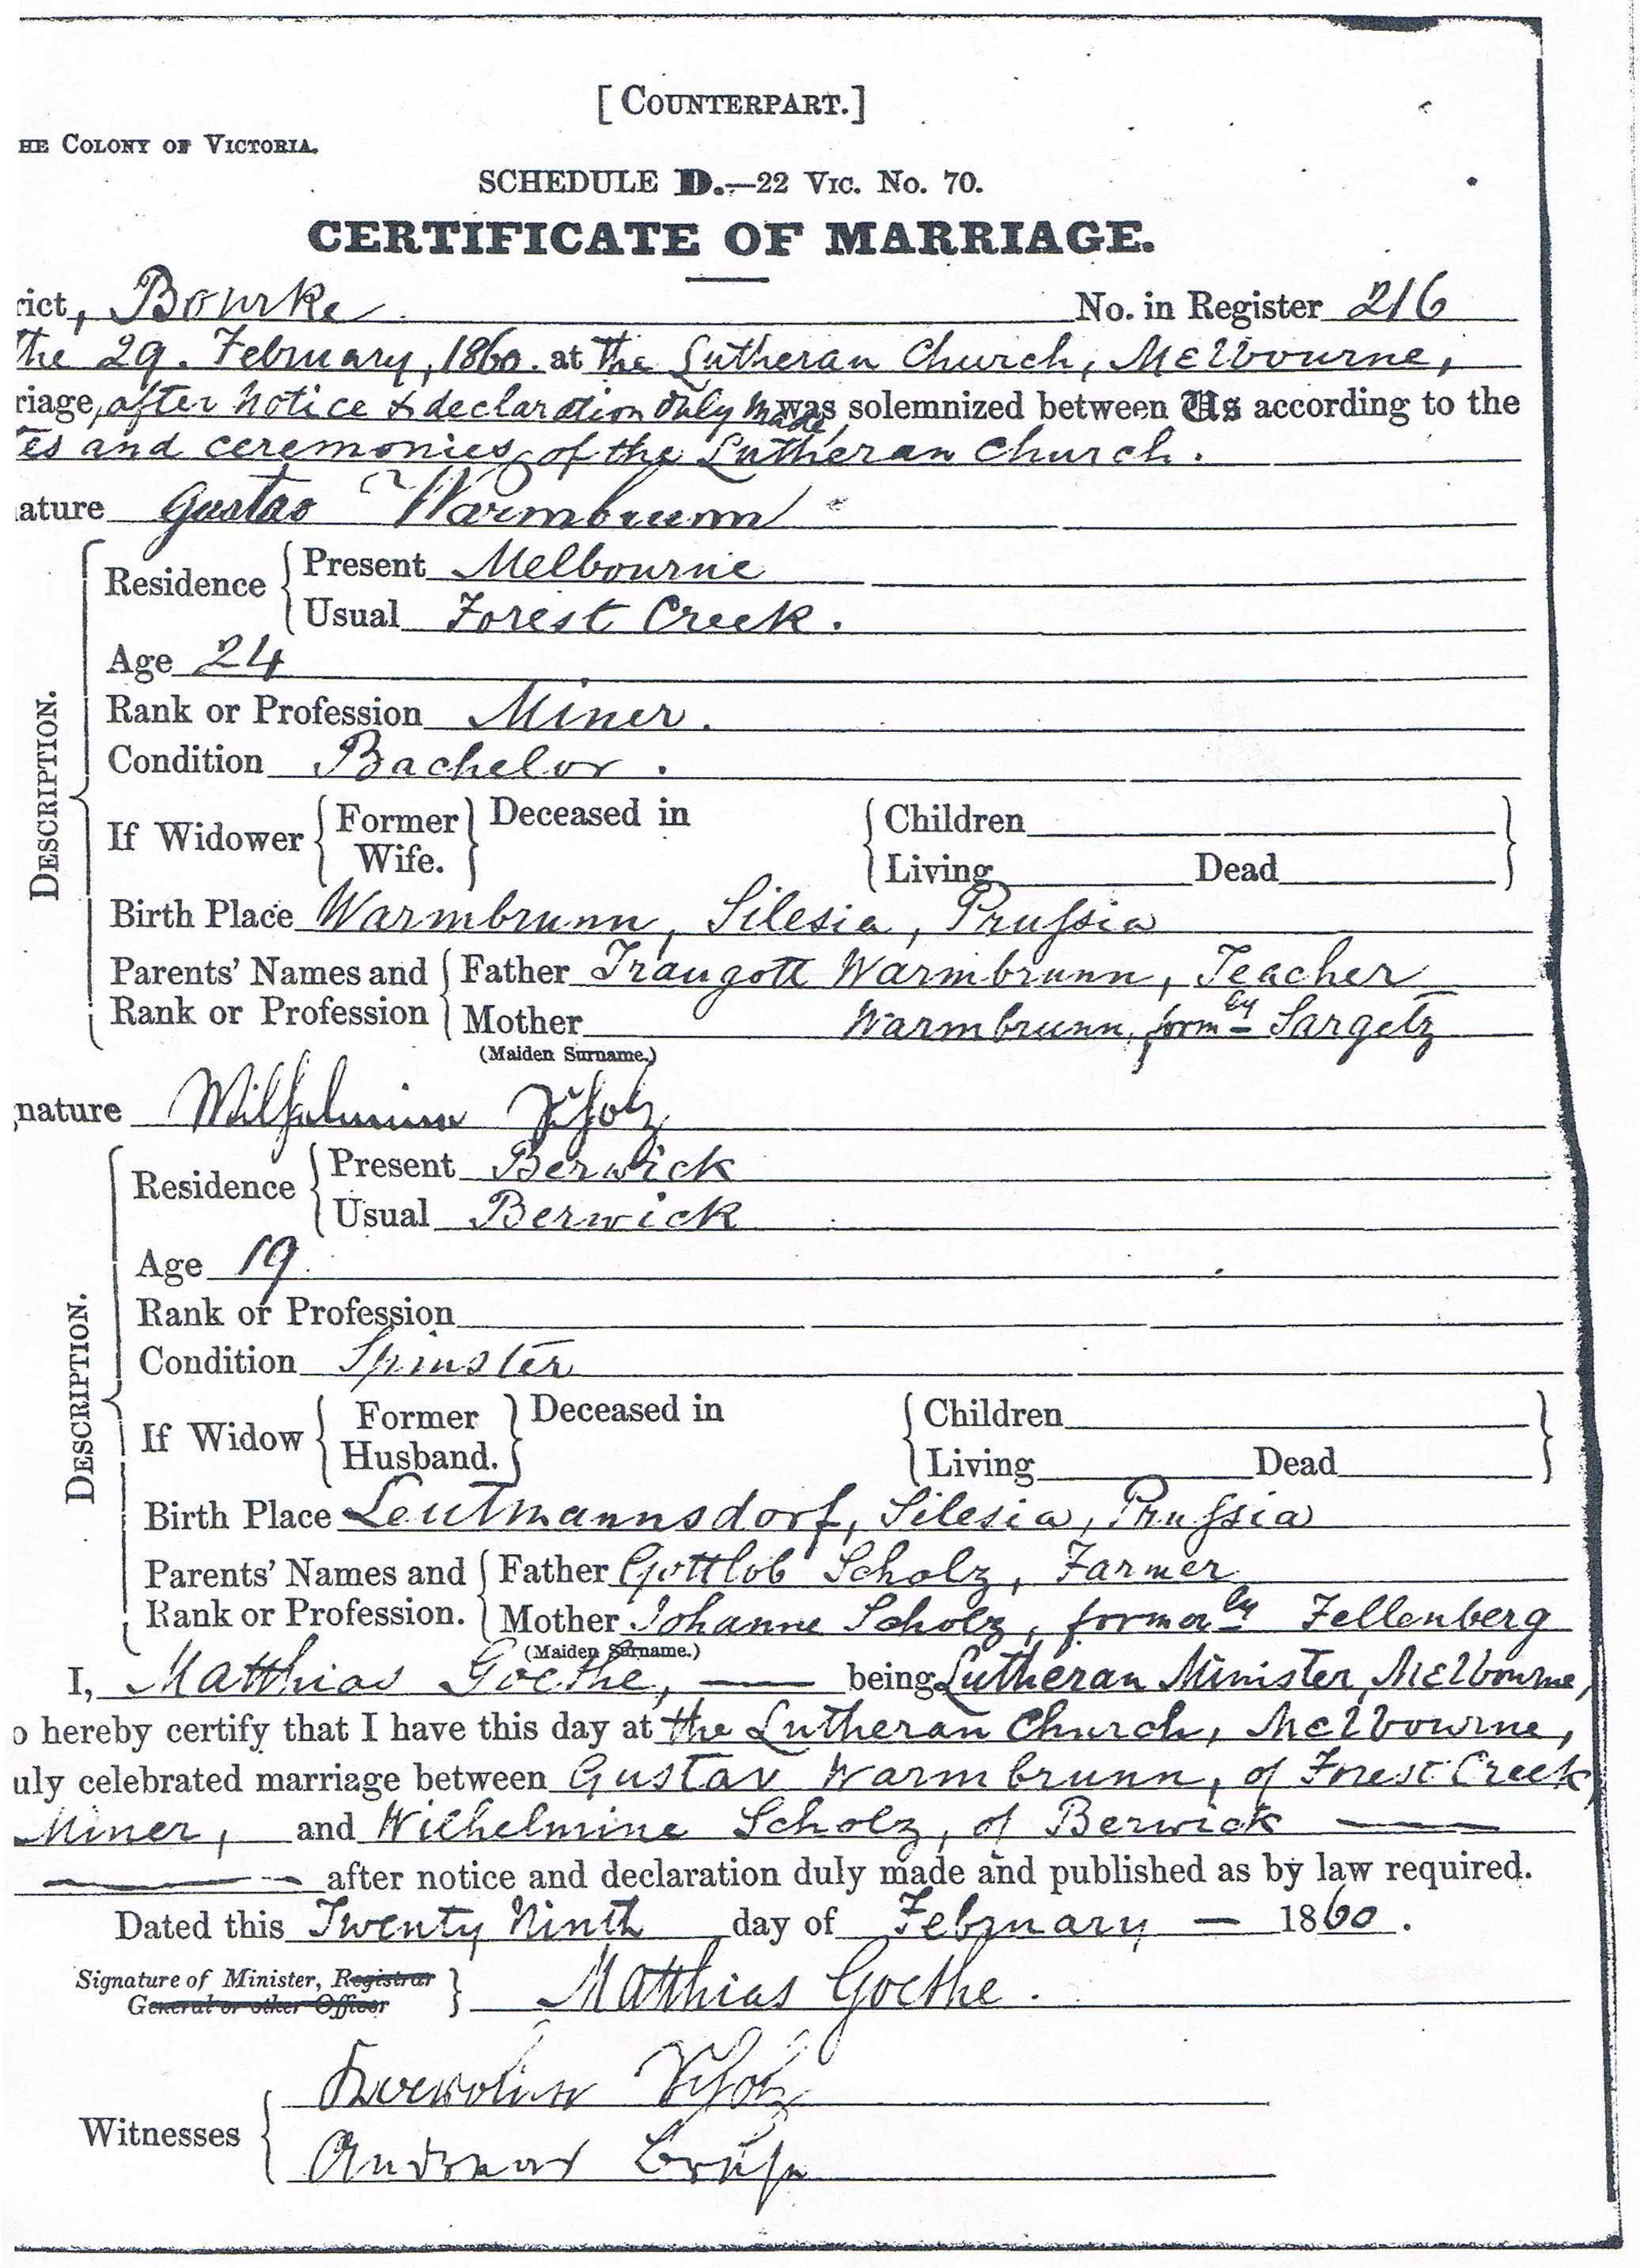 [COUNTERPART.]
HE COLONY OF VICTORIA.
SCHEDULE D.—22 VIC. No. 70.
CERTIFICATE OF MARRIAGE.
rict, Bourke No. in Register 216
the 29. February, 1860. at the Lutheran Church, Melbourne,
riage, after notice & declaration duly made, was solemnized between Us according to the
es and ceremonies of the Lutheran Church.
ature Gustav Warmbrunn
DESCRIPTION.
Residence Present Melbourne
Usual Forest Creek.
Age 24
Rank or Profession Miner.
Condition Bachelor.
If Widower Former Wife. Deceased in Children
Living Dead
Birth Place Warmbrunn, Silesia, Prußia
Parents' Names and Rank or Profession Father Traugott Warmbrunn, Teacher
Mother Warmbrunn, formly Sargetz
(Maiden Surname.)
nature Wilhelmine Scholz
DESCRIPTION.
Residence Present Berwick
Usual Berwick
Age 19
Rank or Profession
Condition Spinster
If Widow Former Husband. Deceased in Children
Living Dead
Birth Place Leutmannsdorf, Silesia, Prußia
Parents' Names and Rank or Profession. Father Gottlob Scholz, Farmer
Mother Johanne Scholz, formerly Fellenberg
(Maiden Surname.)
I, Matthias Goethe, — being Lutheran Minister, Melbourne,
o hereby certify that I have this day at the Lutheran Church, Melbourne,
uly celebrated marriage between Gustav Warmbrunn, of Forest Creek,
Miner, and Wilhelmine Scholz, of Berwick —
— after notice and declaration duly made and published as by law required.
Dated this Twenty Ninth day of February — 1860.
Signature of Minister, Registrar
General or other Officer Matthias Goethe.
Witnesses Scholz
Andreas